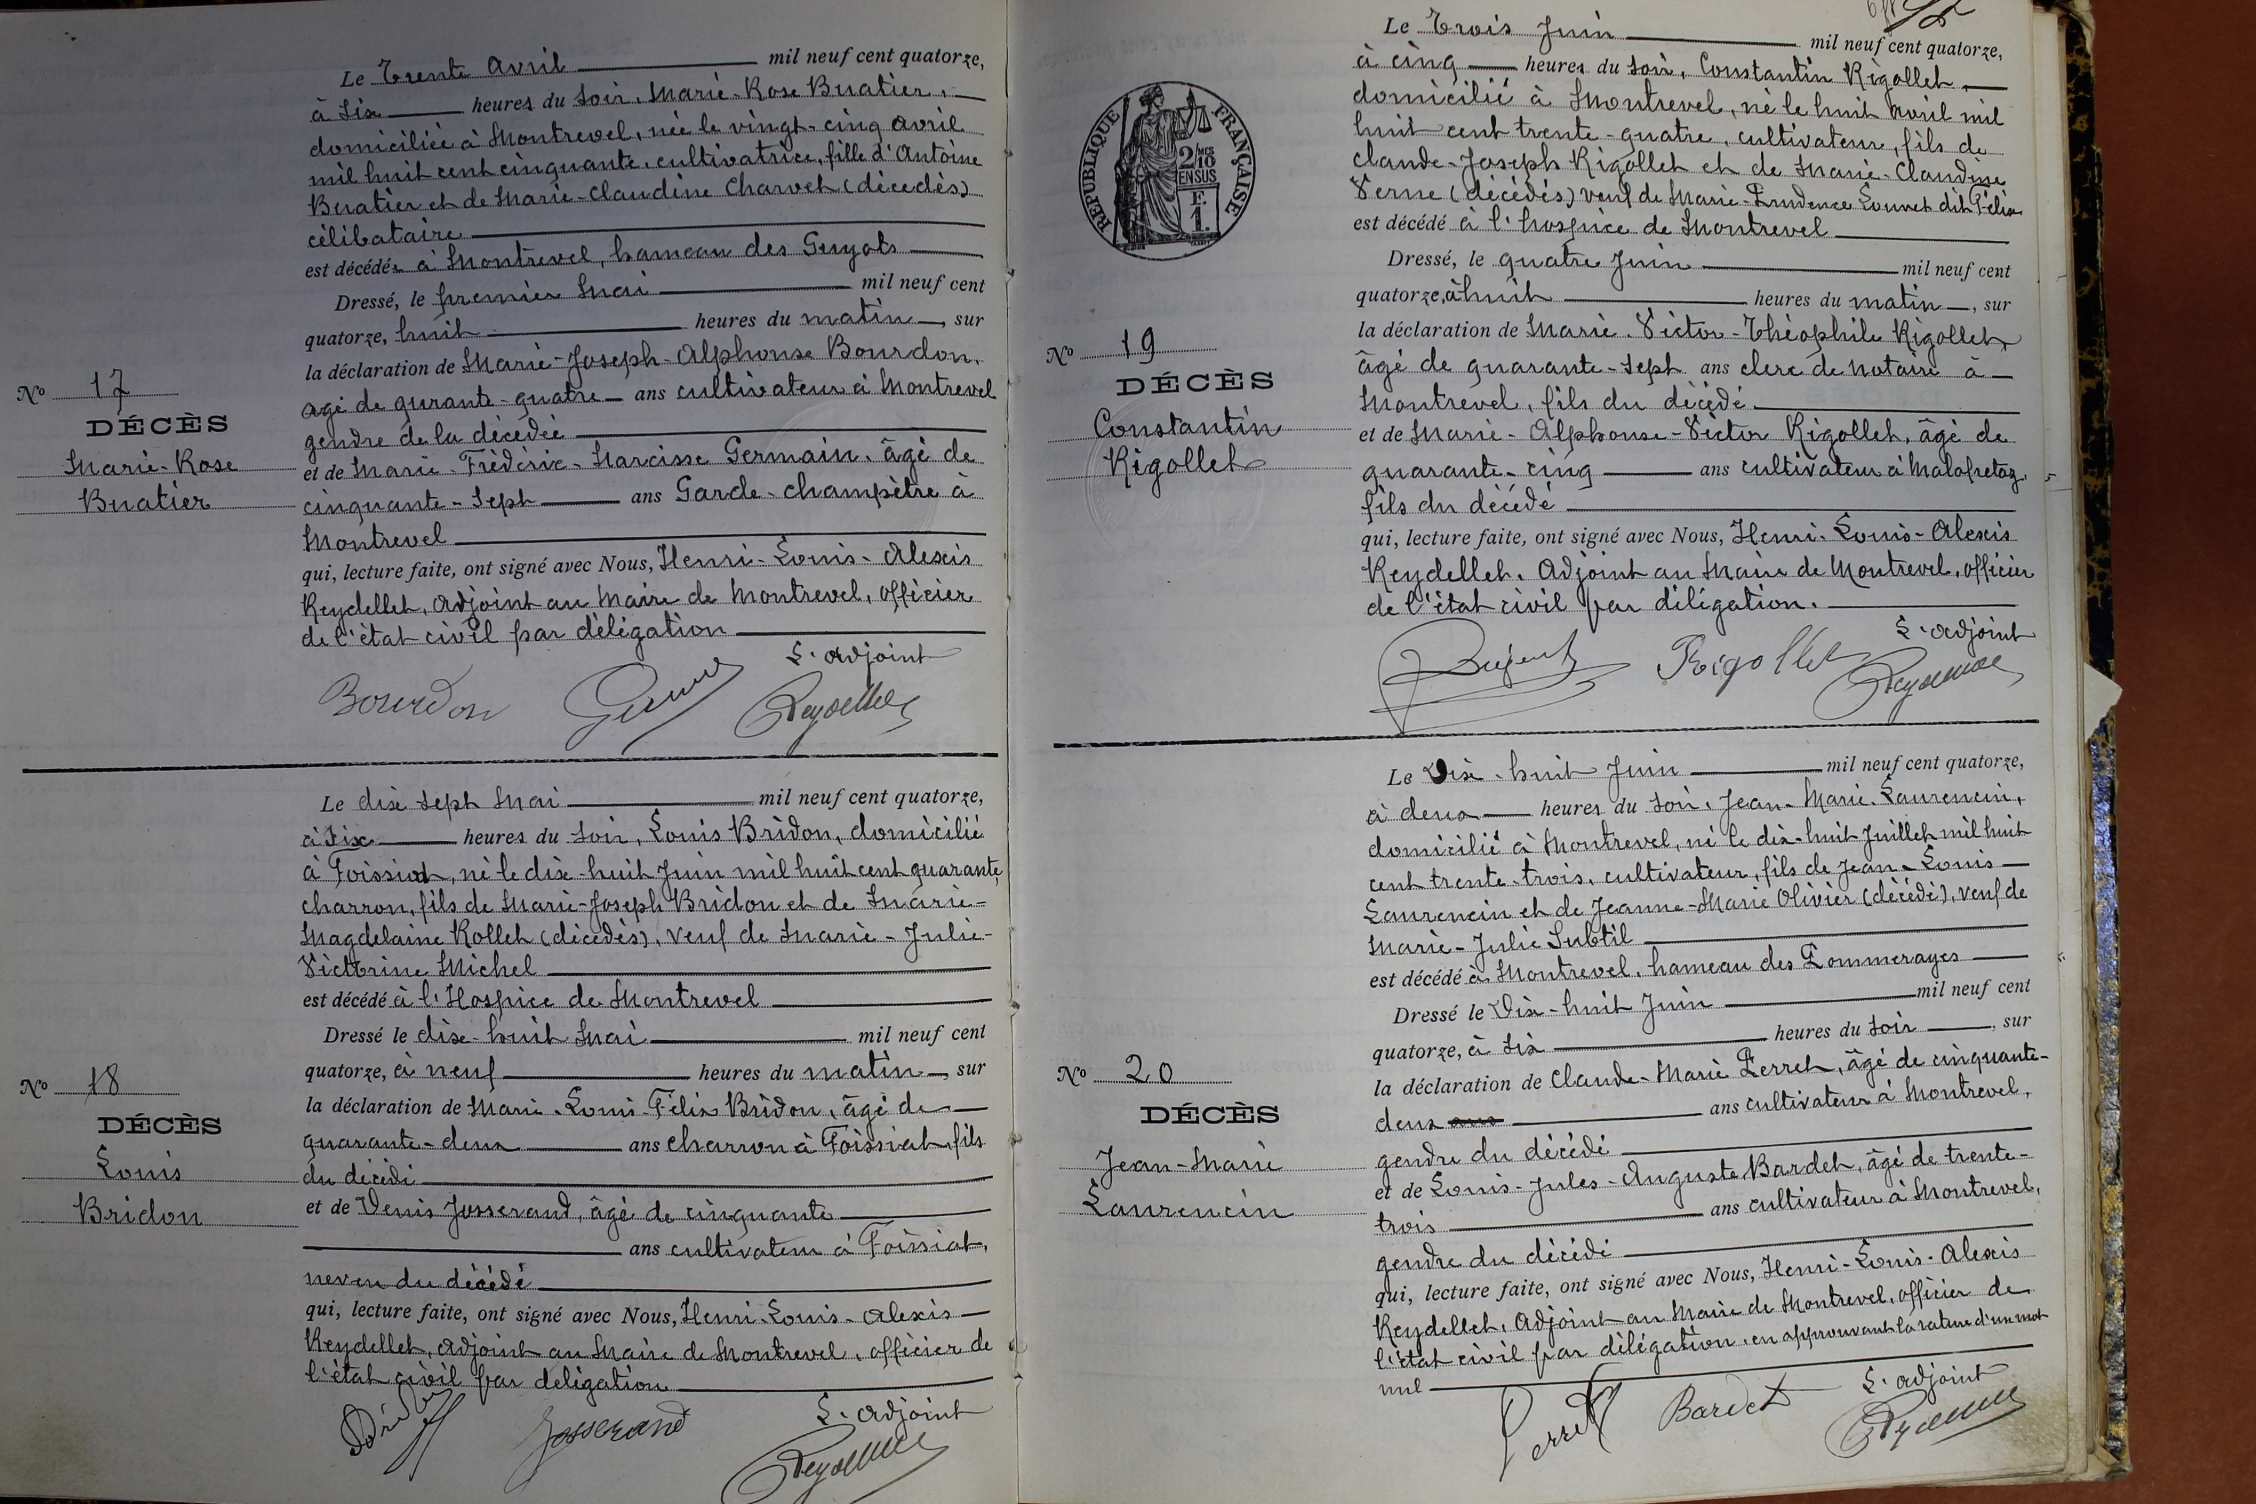 Le Trente Avril mil neuf cent quatorze,
à six heures du soir, Marie-Rose Buatier,
domiciliée à Montrevel, née le vingt-cinq avril
mil huit cent cinquante, cultivatrice, fille d'Antoine
Buatier et de Marie-Claudine Charvet (décédés)
célibataire
est décédée à Montrevel, hameau des Guyots
Dressé, le premier Mai mil neuf cent
quatorze, huit heures du matin, sur
la déclaration de Marie-Joseph-Alphonse Bourdon,
agé de qurante-quatre ans cultivateur à Montrevel
gendre de la décédée
et de Marie-Frédéric-Narcisse Germain, âgé de
cinquante-sept ans Garde-champêtre à
Montrevel
qui, lecture faite, ont signé avec Nous, Henri-Louis-Alexis
Reydellet, Adjoint au Maire de Montrevel, officier
de l'état civil par délégation
L'adjoint
Bourdon
Reydellet
No 17
DÉCÈS
Marie-Rose
Buatier
Le dix sept Mai mil neuf cent quatorze,
à six heures du soir, Louis Bridon, domicilié
à Foissiat, né le dix-huit Juin mil huit cent quarante,
charron, fils de Marie-Joseph Bridon et de Marie-
Magdelaine Rollet (décédés), veuf de Marie-Julie-
Victorine Michel
est décédé à l'Hospice de Montrevel
Dressé le dix-huit Mai mil neuf cent
quatorze, à neuf heures du matin, sur
la déclaration de Marie-Louis-Félix Bridon, âgé de
quarante-deux ans charron à Foissiat, fils
du décédé
et de Denis Josserand, âgé de cinquante
ans cultivateur à Foissiat,
neveu du décédé
qui, lecture faite, ont signé avec Nous, Henri-Louis-Alexis
Reydellet, Adjoint au Maire de Montrevel, officier de
l'état civil par délégation
L'adjoint
Josserand
Reydellet
No 18
DÉCÈS
Louis
Bridon
Le Trois Juin mil neuf cent quatorze,
à cinq heures du soir, Constantin Rigollet,
domicilié à Montrevel, né le huit Avril mil
huit cent trente-quatre, cultivateur, fils de
Claude-Joseph Rigollet et de Marie-Claudine
Verne (décédés) veuf de Marie-Prudence Louvet dit Félix
est décédé à l'hospice de Montrevel
Dressé, le quatre Juin mil neuf cent
quatorze, à huit heures du matin, sur
la déclaration de Marie-Victor-Théophile Rigollet,
âgé de quarante-sept ans clerc de notaire à
Montrevel, fils du décédé
et de Marie-Alphonse-Victor Rigollet, âgé de
quarante-cinq ans cultivateur à Malafretaz,
fils du décédé
qui, lecture faite, ont signé avec Nous, Henri-Louis-Alexis
Reydellet, Adjoint au Maire de Montrevel, officier
de l'état civil par délégation.
L'adjoint
Rigollet
Reydellet
RÉPUBLIQUE FRANÇAISE
2/10
EN SUS
F.
1.
No 19
DÉCÈS
Constantin
Rigollet
Le Dix-huit Juin mil neuf cent quatorze,
à deux heures du soir, Jean-Marie Laurencin,
domicilié à Montrevel, né le dix-huit Juillet mil huit
cent trente-trois, cultivateur, fils de Jean-Louis
Laurencin et de Jeanne-Marie Olivier (décédé), veuf de
Marie-Julie Subtil
est décédé à Montrevel, hameau des Pommerayes
Dressé le Dix-huit Juin mil neuf cent
quatorze, à six heures du soir, sur
la déclaration de Claude-Marie Perret, âgé de cinquante-
deux ans ans cultivateur à Montrevel,
gendre du décédé
et de Louis-Jules-Auguste Bardet, âgé de trente-
trois ans cultivateur à Montrevel,
gendre du décédé
qui, lecture faite, ont signé avec Nous, Henri-Louis-Alexis
Reydellet, Adjoint au Maire de Montrevel, officier de
l'état civil par délégation, en approuvant la rature d'un mot
nul
L'adjoint
Perret
Bardet
Reydellet
No 20
DÉCÈS
Jean-Marie
Laurencin